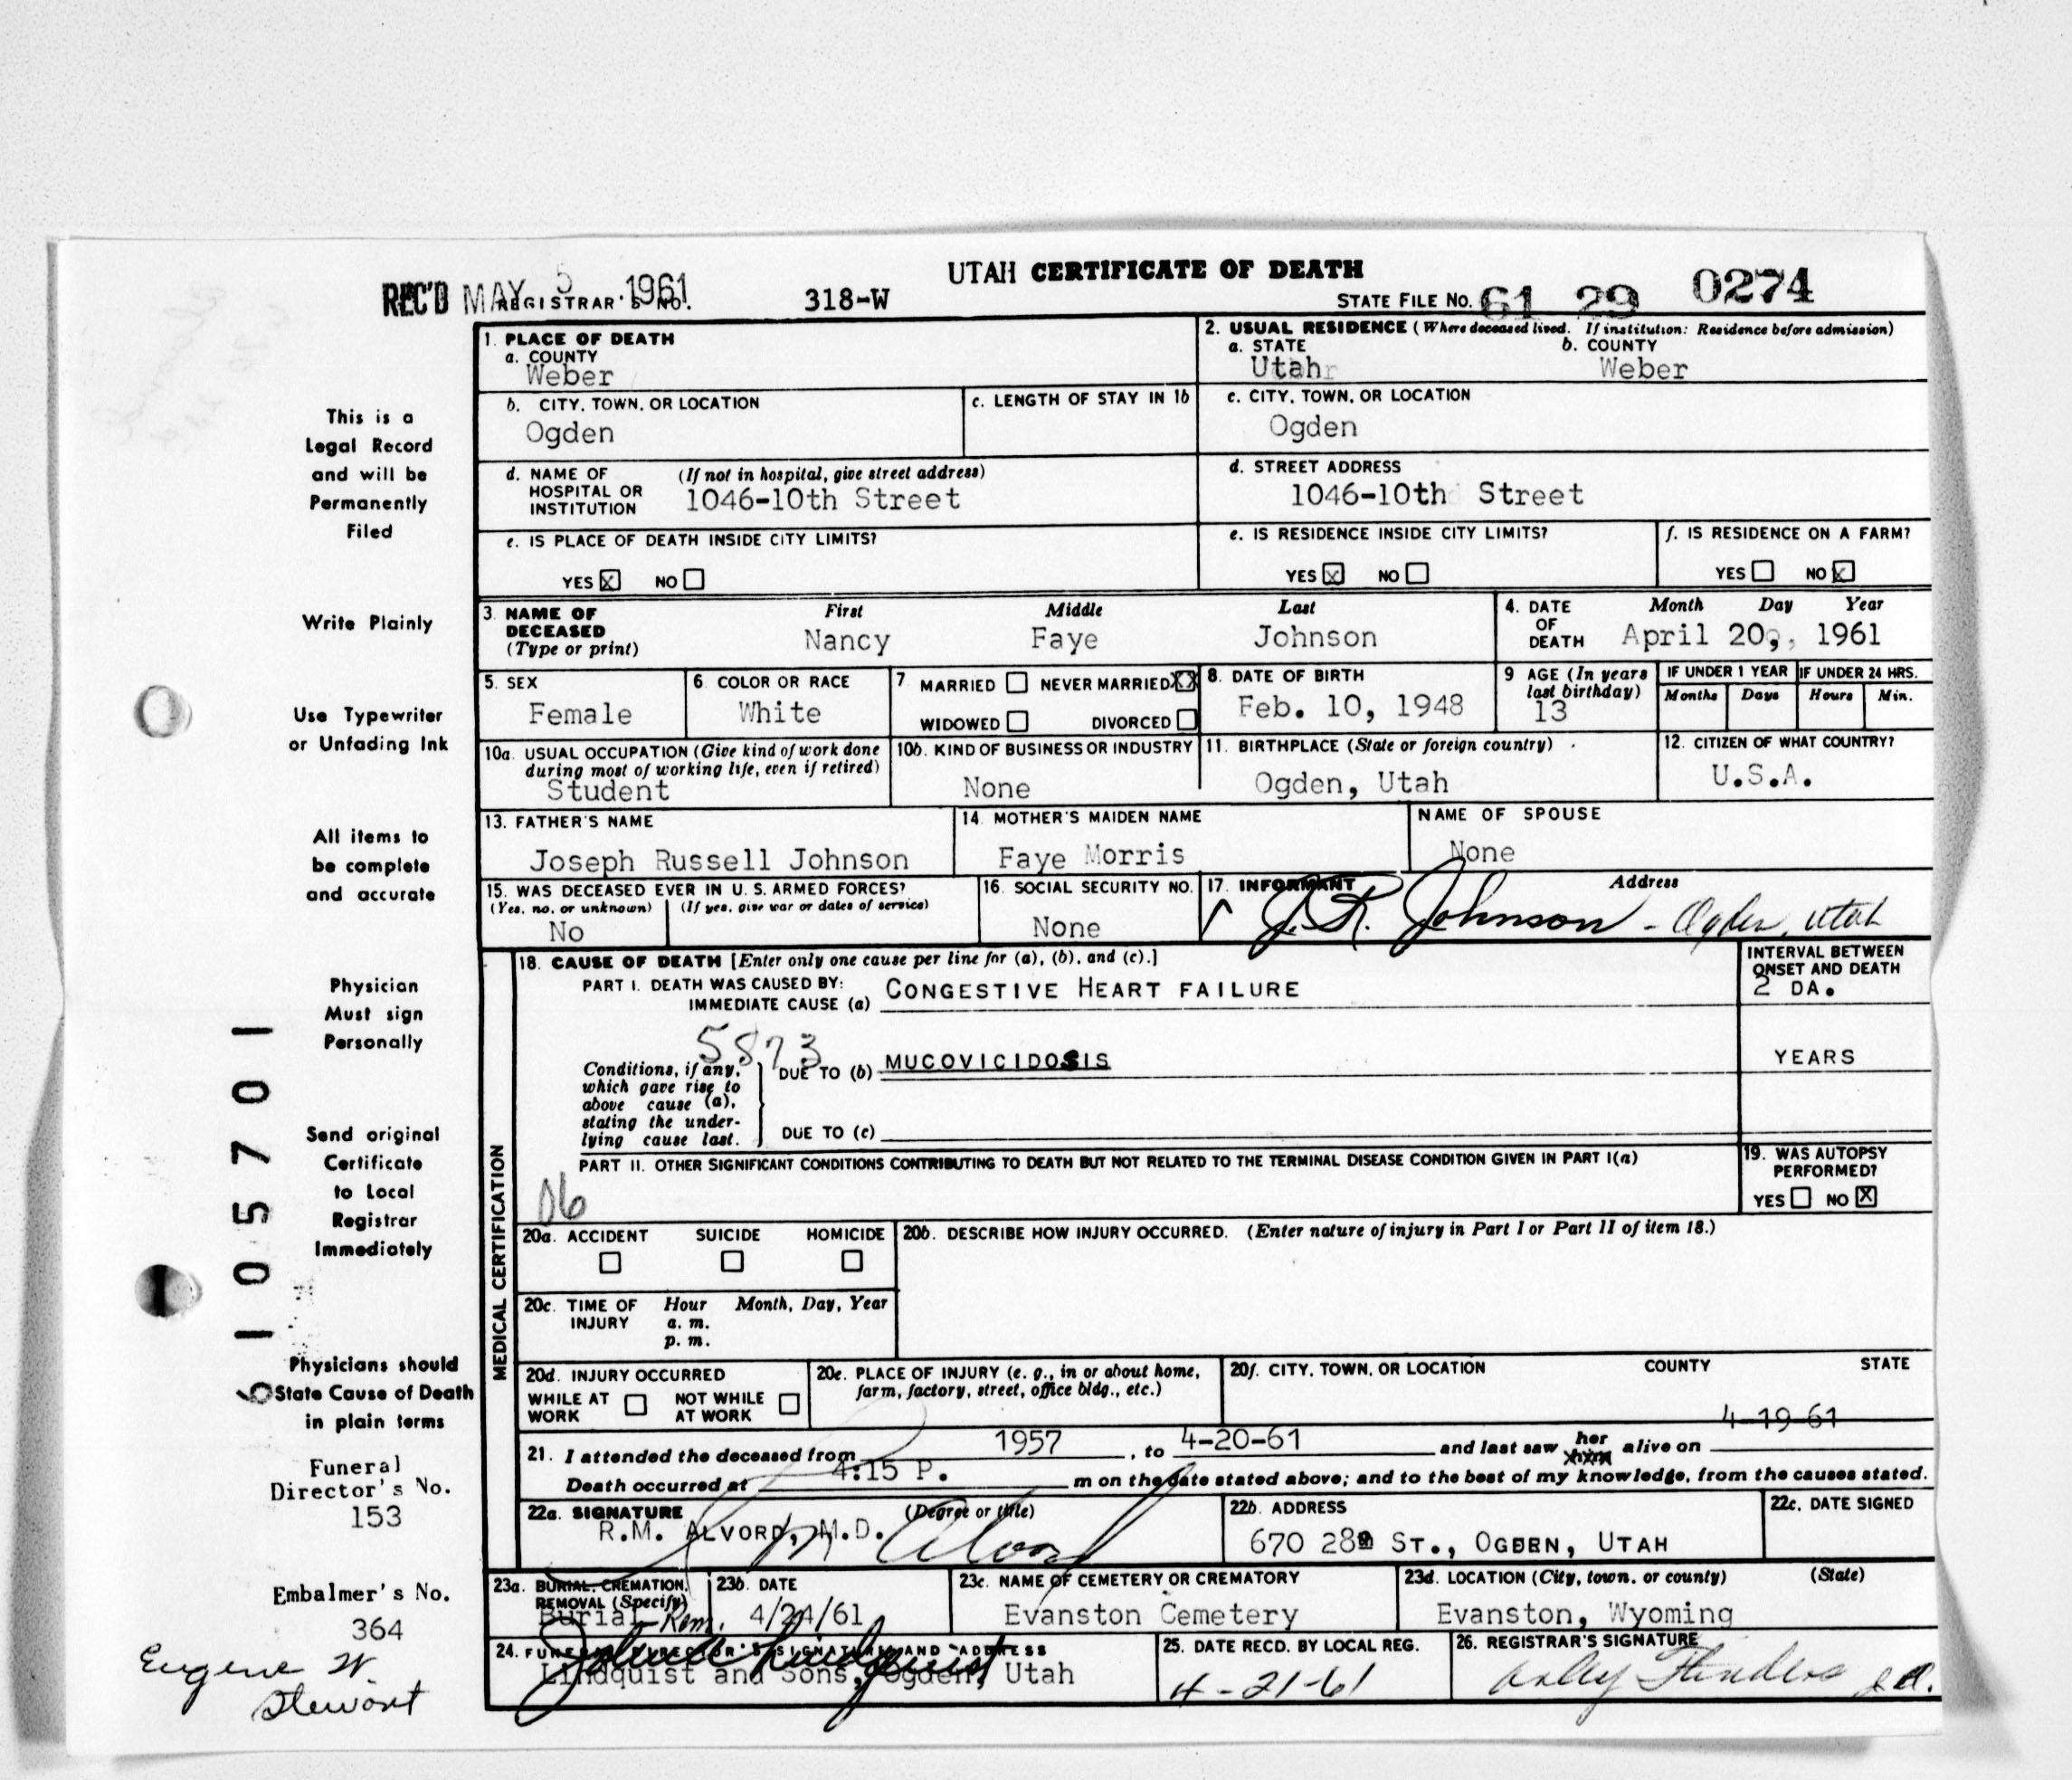 UTAH CERTIFICATE OF DEATH
REC'D MAY 5 1961 REGISTRAR'S NO. 318-W STATE FILE NO. 61 29 0274
1. PLACE OF DEATH
a. COUNTY
Weber
2. USUAL RESIDENCE (Where deceased lived. If institution: Residence before admission)
a. STATE b. COUNTY
Utah Weber
b. CITY, TOWN, OR LOCATION c. LENGTH OF STAY IN 1b
Ogden
c. CITY, TOWN, OR LOCATION
Ogden
d. NAME OF HOSPITAL OR INSTITUTION (If not in hospital, give street address)
1046-10th Street
d. STREET ADDRESS
1046-10th Street
e. IS PLACE OF DEATH INSIDE CITY LIMITS?
YES X NO
e. IS RESIDENCE INSIDE CITY LIMITS?
YES X NO
f. IS RESIDENCE ON A FARM?
YES NO X
3. NAME OF DECEASED (Type or print)
First Middle Last
Nancy Faye Johnson
4. DATE OF DEATH Month Day Year
April 20, 1961
5. SEX
Female
6. COLOR OR RACE
White
7 MARRIED NEVER MARRIED XX
WIDOWED DIVORCED
8. DATE OF BIRTH
Feb. 10, 1948
9 AGE (In years last birthday)
13
IF UNDER 1 YEAR IF UNDER 24 HRS.
Months Days Hours Min.
10a. USUAL OCCUPATION (Give kind of work done during most of working life, even if retired)
Student
10b. KIND OF BUSINESS OR INDUSTRY
None
11. BIRTHPLACE (State or foreign country)
Ogden, Utah
12. CITIZEN OF WHAT COUNTRY?
U.S.A.
13. FATHER'S NAME
Joseph Russell Johnson
14. MOTHER'S MAIDEN NAME
Faye Morris
NAME OF SPOUSE
None
15. WAS DECEASED EVER IN U. S. ARMED FORCES?
(Yes, no, or unknown) (If yes, give war or dates of service)
No
16. SOCIAL SECURITY NO.
None
17. INFORMANT Address
J. R. Johnson - Ogden, Utah
MEDICAL CERTIFICATION
18. CAUSE OF DEATH [Enter only one cause per line for (a), (b), and (c).]
INTERVAL BETWEEN ONSET AND DEATH
PART I. DEATH WAS CAUSED BY:
IMMEDIATE CAUSE (a) CONGESTIVE HEART FAILURE 2 DA.
5873
Conditions, if any, which gave rise to above cause (a), stating the underlying cause last.
DUE TO (b) MUCOVICIDOSIS YEARS
DUE TO (c)
PART II. OTHER SIGNIFICANT CONDITIONS CONTRIBUTING TO DEATH BUT NOT RELATED TO THE TERMINAL DISEASE CONDITION GIVEN IN PART I(a)
06
19. WAS AUTOPSY PERFORMED?
YES NO X
20a. ACCIDENT SUICIDE HOMICIDE
20b. DESCRIBE HOW INJURY OCCURRED. (Enter nature of injury in Part I or Part II of item 18.)
20c. TIME OF INJURY Hour Month, Day, Year
a. m.
p. m.
20d. INJURY OCCURRED
WHILE AT WORK NOT WHILE AT WORK
20e. PLACE OF INJURY (e. g., in or about home, farm, factory, street, office bldg., etc.)
20f. CITY, TOWN, OR LOCATION COUNTY STATE
21. I attended the deceased from 1957, to 4-20-61 and last saw her him alive on 4-19-61
Death occurred at 4:15 P. m on the date stated above; and to the best of my knowledge, from the causes stated.
22a. SIGNATURE (Degree or title)
R.M. ALVORD, M.D.
22b. ADDRESS
670 28 ST., OGDEN, UTAH
22c. DATE SIGNED
23a. BURIAL, CREMATION, REMOVAL (Specify)
Burial-Rem.
23b. DATE
4/24/61
23c. NAME OF CEMETERY OR CREMATORY
Evanston Cemetery
23d. LOCATION (City, town, or county) (State)
Evanston, Wyoming
24. FUNERAL DIRECTOR'S SIGNATURE AND ADDRESS
Lindquist and Sons, Ogden, Utah
25. DATE RECD. BY LOCAL REG.
4-21-61
26. REGISTRAR'S SIGNATURE
This is a
Legal Record
and will be
Permanently
Filed
Write Plainly
Use Typewriter
or Unfading Ink
All items to
be complete
and accurate
Physician
Must sign
Personally
Send original
Certificate
to Local
Registrar
Immediately
Physicians should
State Cause of Death
in plain terms
Funeral
Director's No.
153
Embalmer's No.
364
Eugene W.
Stewart
6105701